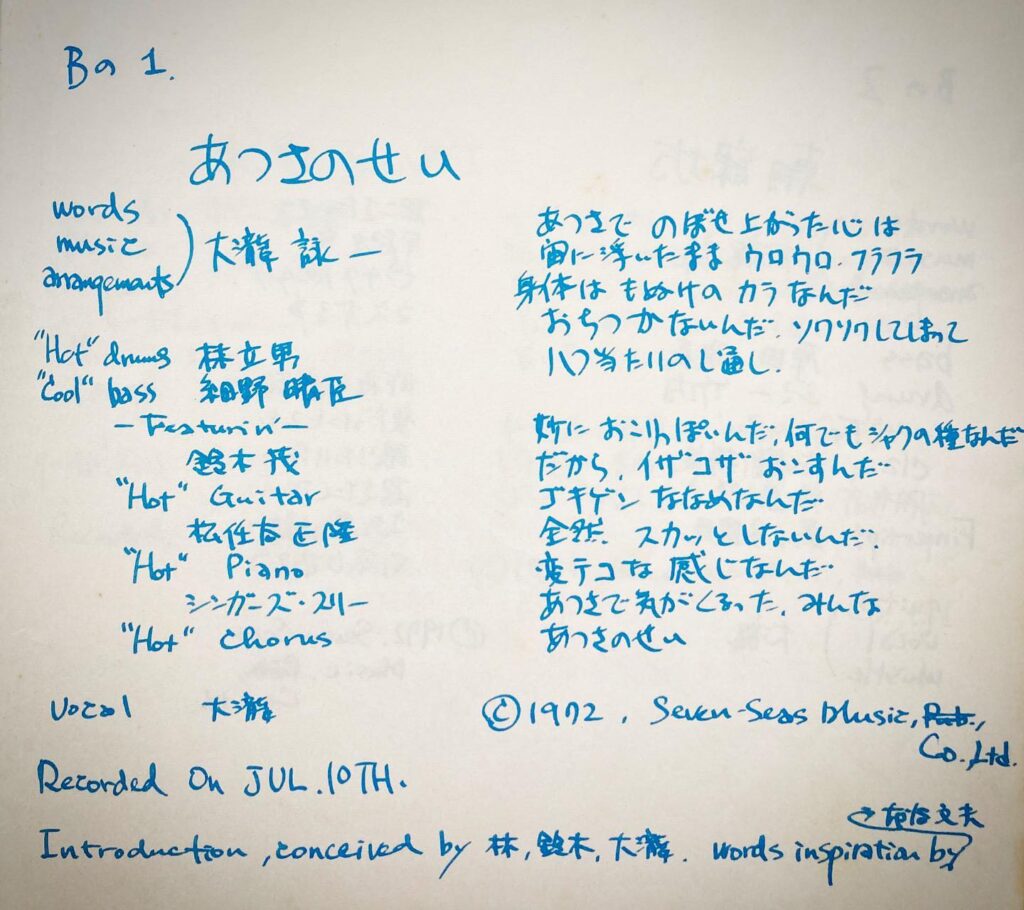 Bの 1.
あつさのせい
words
music
arrangements
大瀧 詠一
"Hot" drums 林立男
"Cool" bass 細野晴臣
－Featurin'－
鈴木茂
"Hot" Guitar
松任谷正隆
"Hot" Piano
シンガーズ・スリー
"Hot" Chorus
Vocal 大瀧
Recorded On JUL.10TH.
あつさで のぼせ上がった心は
宙に浮いたまま ウロウロ.フラフラ
身体は もぬけの カラなんだ
おちつかないんだ.ソワソワしてしまって
八つ当たりのし通し.
妙に おこりっぽいんだ,何でもシャクの種なんだ
だから,イザコザ おこすんだ
ゴキゲン ななめなんだ
全然. スカッとしないんだ.
変テコな 感じなんだ
あつさで気がくるった,みんな
あつさのせい
©1972, Seven-Seas Music, Pub.,
Co.,Ltd.
Introduction, conceived by 林,鈴木,大瀧. words inspiration by
文夫